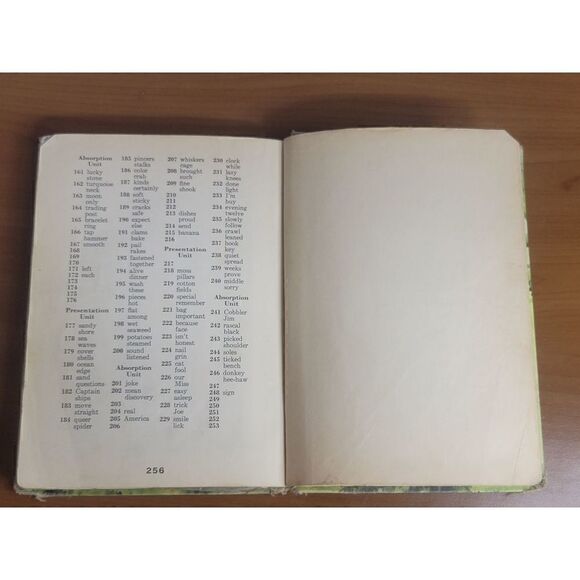 Absorption
Unit
161 lucky
stone
162 turquoise
neck
163 moon
only
164 trading
post
165 bracelet
ring
166 tap
hammer
167 smooth
168
169
170
171 left
172 each
173
174
175
176
Presentation
Unit
177 sandy
shore
178 sea
waves
179 cover
shells
180 ocean
edge
181 sand
questions
182 Captain
ships
183 move
straight
184 queer
spider
185 pincers
stalks
186 color
crab
187 kinds
certainly
188 soft
sticky
189 cracks
safe
190 expect
else
191 clams
bake
192 pail
rakes
193 fastened
together
194 alive
dinner
195 wash
these
196 pieces
hot
197 flat
among
198 wet
seaweed
199 potatoes
steamed
200 sound
listened
Absorption
Unit
201 joke
202 mean
discovery
203
204 real
205 America
206
207 whiskers
cage
208 brought
such
209 fine
shook
210
211
212
213 dishes
proud
214 send
215 banana
216
Presentation
Unit
217
218 moss
pillars
219 cotton
fields
220 special
remember
221 bag
important
222 because
face
223 isn't
honest
224 nail
grin
225 cat
fool
226 our
Miss
227 easy
asleep
228 trick
Joe
229 smile
lick
230 clock
while
231 lazy
knees
232 done
light
233 I'm
buy
234 evening
twelve
235 slowly
follow
236 crawl
leaned
237 hook
key
238 quiet
spread
239 weeks
prove
240 middle
sorry
Absorption
Unit
241 Cobbler
Jim
242 rascal
black
243 picked
shoulder
244 soles
245 ticked
bench
246 donkey
hee-haw
247
248 sign
249
250
251
252
253
256